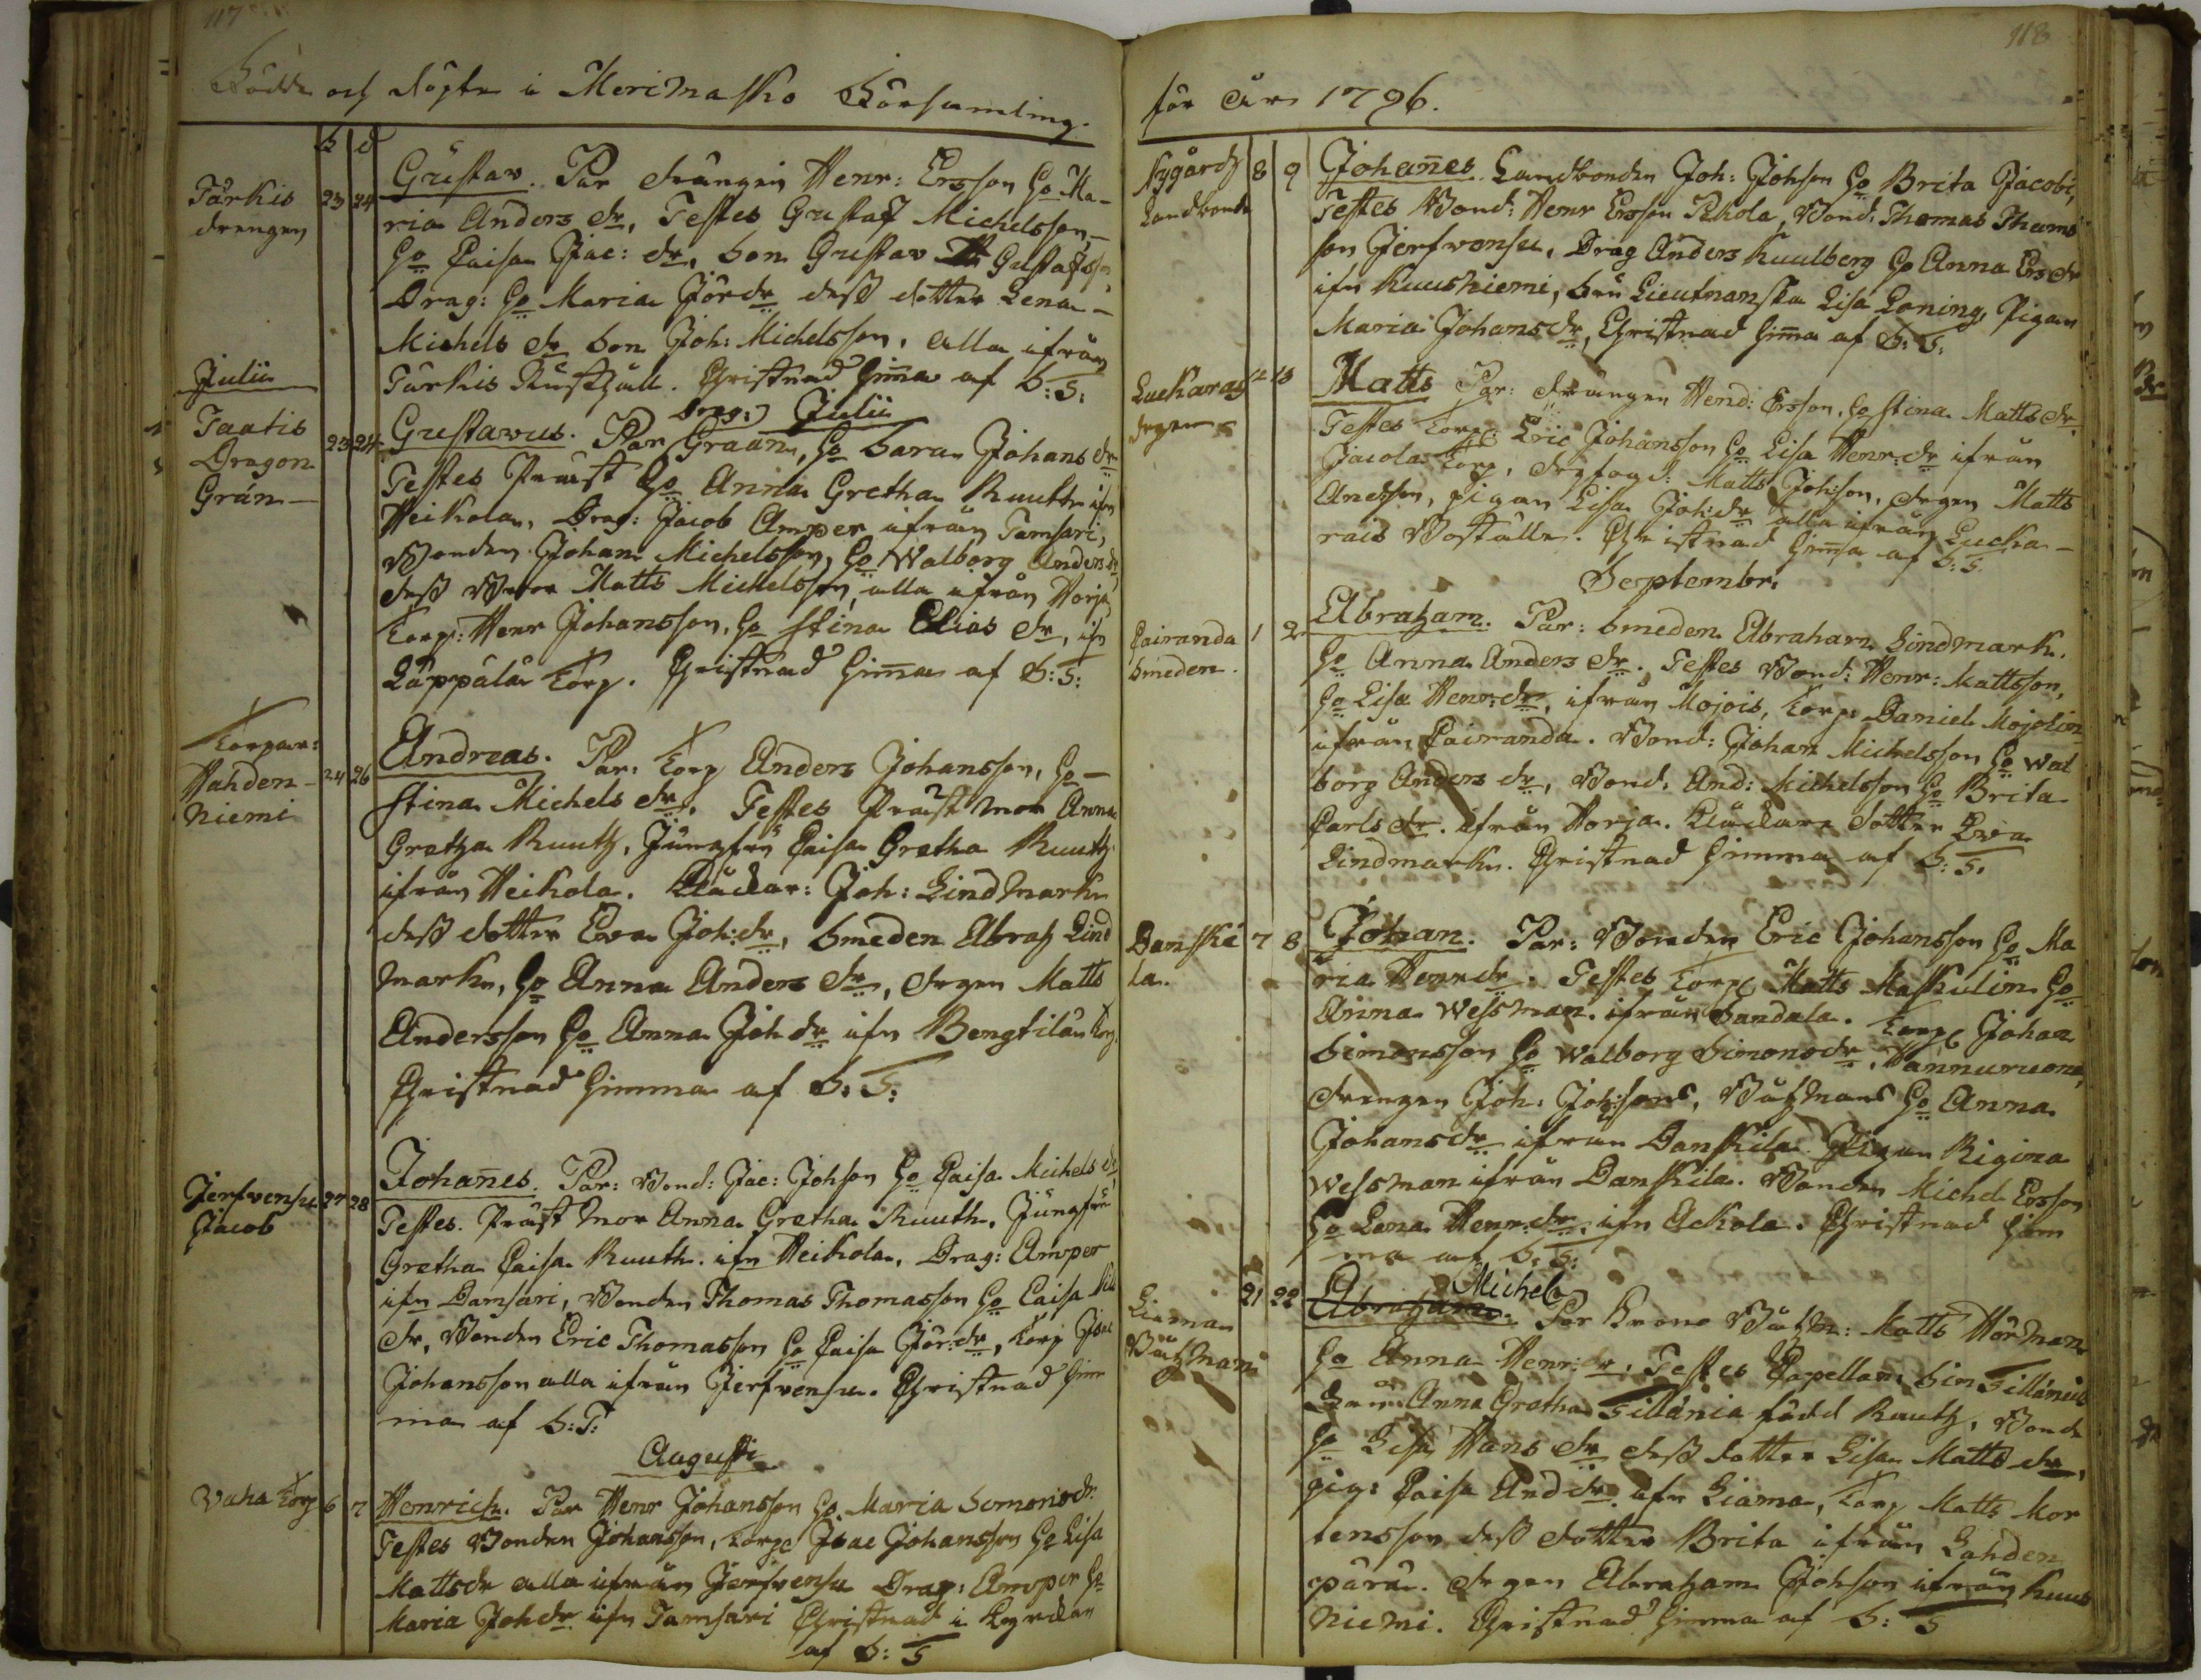 117
Födde och döpte i Merimasko Församling.
b d
Türkis
drengen
23 24
Gustav. Par drängen Henr: Ersson Ho Ma-
ria Anders dr, Testes Gustaf Michelsson
Ho Caisa Jac: dr, Son Gustav Gustafsson
Drag: Ho Maria Jör dr dess dotter Lena
Michels dr Son Joh: Michelsson, alla ifrån
Türkis Rusthåll. Christnad hema af S: T:
Julii
Julii
Taatis
Dragon
Grån
23 24
Gustavus. Par Drag: Graan, Ho Sara Johans dr
Testes Präst Ho Anna Gretha Ruuth ifn
Heikola, Drag: Jacob Amper ifrån Tamsari,
Bonden Johan Michelsson, Ho Walborg Anders dr
dess Broder Matts Michelsson, alla ifrån Horja
Torp: Henr Johansson, Ho Stina Elias dr, ifn
Läppälä Torp. Christnad hema af S: T:
Torpar:
Hahden-
niemi
24 26
Andreas. Par: Torp Anders Johansson, Ho
Stina Michels dr, Testes Präst mor Anna
Gretha Ruuth, Jungfru Caisa Gretha Ruuth
ifrån Heikola. Klåckar: Joh: Lindmark
dess dotter Eva Joh: dr, Smeden Abrah Lind
mark, Ho Anna Anders dr, drgen Matts
Andersson Ho Anna Joh dr ifn Bengtilä Torp.
Christnad himma af S: T:
Jerfvensu
Jacob
27 28
Johañes. Par: Bond: Jac: Johson Ho Caisa Michels dr
Testes. Präst mor Anna Gretha Ruuth, Jungfru
Gretha Caisa Ruuth ifn Heikola, Drag: Amper
ifn Damsari, Bonden Thomas Thomasson Ho Caisa
dr, Bonden Eric Thomasson Ho Caisa Jör: dr, Torp Isac
Johansson alla ifrån Jerfvensu. Christnad him
ma af S: T:
Augusti
Vaha Torp
6 7
Henrich. Par Henr Johansson Ho Maria Simonsdr
Testes Bonden Johansson, Torp Isac Johansson Ho Lisa
Mattsdr alla ifrån Jerfvensu Drag: Amper Ho
Maria Joh dr ifn Tamsari Christnad i Kyrckan
af S: T
118
för år 1796.
Nygårds
Landbonde
8 9
Johañes. Landbonden Joh: Johson Ho Brita Jacobi,
Testes Bond: Henr Ersson Pekola, Bond: Thomas Thoms
son Jerfvensu, Drag Anders Kuulberg Ho Anna Ers dr
ifn Kuusniemi, Fru Lieutnanska Lisa Loning, Pigan
Maria Johansdr, Christnad hima af S: T:
Luckarais
drgen
12 13
Matts Par: drängen Hend: Ersson, Ho Stina Matts dr
Testes Torp: Eric Johansson Ho Lisa Henr: dr ifrån
Jacola Torp, drgfogd: Matts Johson, drgen Matts
Andsson, pigan Lisa Joh: dr alla ifrån Lucka-
rais Boställe. Christnad hima af S: T.
Septembr.
Cairanda
Smeden
1 2
Abraham. Par: Smeden Abraham Lindmark.
Ho Anna Anders dr. Testes Bond: Henr: Mattsson,
Ho Lisa Henr: dr, ifrån Mojois, Torp: Daniel Mojolin
ifrån Cairanda. Bond: Johan Michelsson Ho Wal
borg Anders dr, Bond. And: Michelsson Ho Brita
Carls dr. ifrån Horja. Klåckare dotter Eva
Lindmark. Christnad himma af S: T.
Danski
la.
7 8
Johan. Par: Bonden Eric Johansson Ho Ma
ria Henr dr. Testes Torp Matts Maskulin Ho
Anna Wessman ifrån Sandala. Torp Johan
Simonsson Ho Walborg Simonsdr, Hannuruona,
drengen Joh: Johsons, Båtzmans Ho Anna
Johansdr ifrån Danskila. Pigan Rigina
Wessman ifrån Danskila. Bonden Michel Ersson
Ho Lena Henr: dr. ifn Ackola. Christnad him
ma af S: T:
Liiman
Båtzman
21 22
Abraham. Michel
Par Krono Båtzm: Matts Hörman
Ho Anna Henr: dr, Testes Capellan Sin Tillänius
Fru Anna Gretha Tillänia född Ruuth, Bond
Ho Lisa Hans dr dess dotter Lisa Matts dr,
pig: Caisa And dr ifn Liama, Torp Matts Mor
tensson dess dotter Brita ifrån Lahden
pärä. drgen Abraham Johson ifrån Kuus
niemi. Christnad himma af S: T